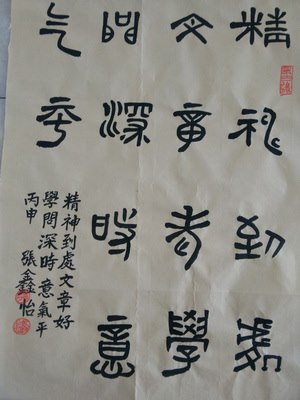 精神到處
文章老學
問深時意
气平
精神到處文章好
學問深時意氣平
丙申 張鑫怡